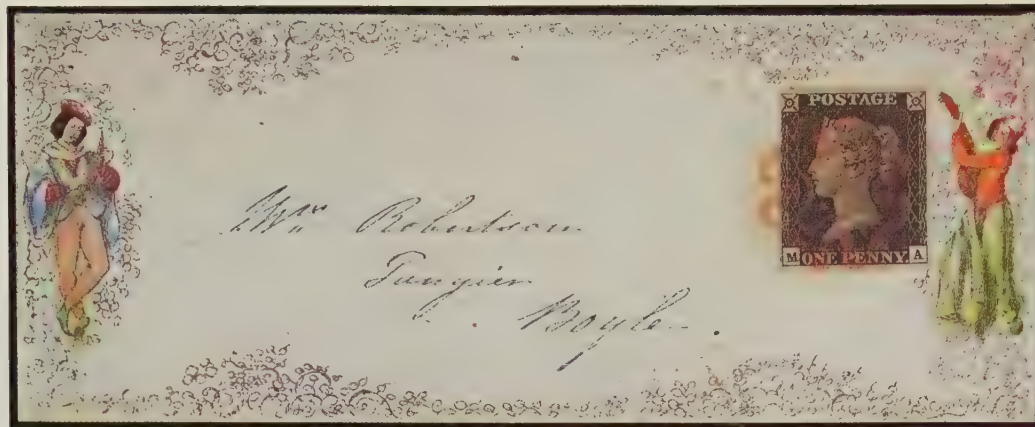 POSTAGE
M ONE PENNY A
Mrs Robertson
Tangier
Boyle.